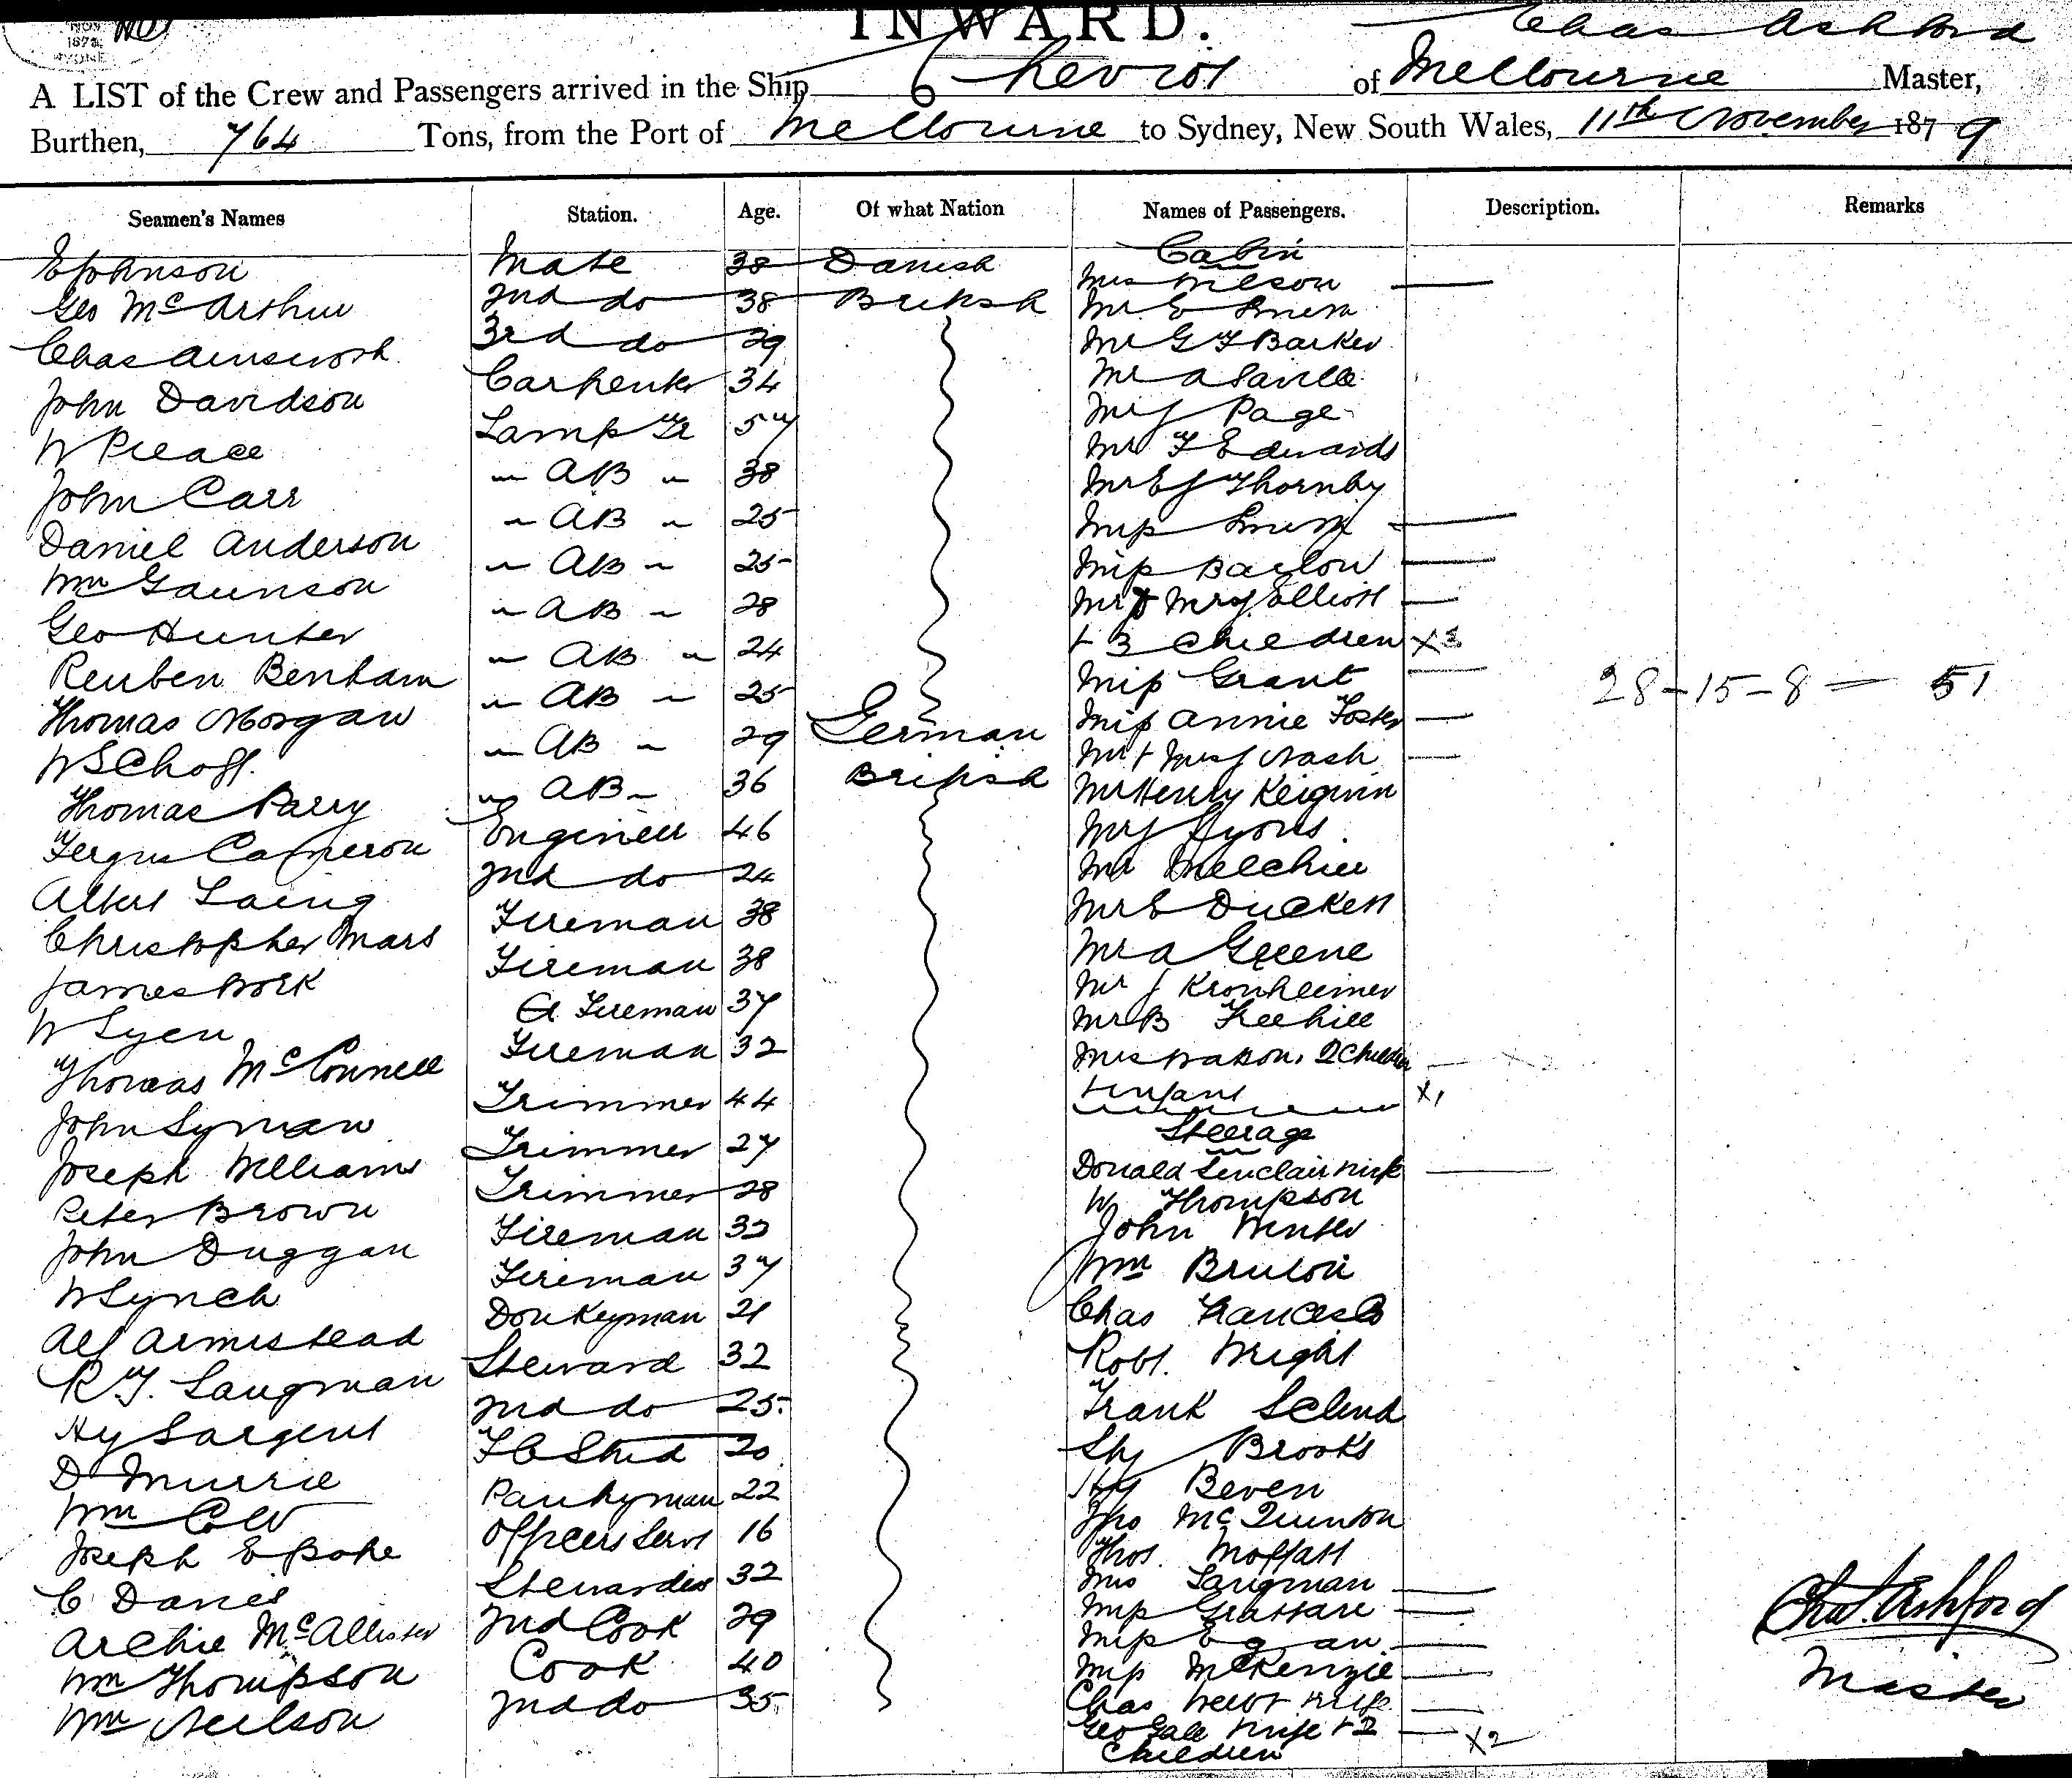 NOV
1879
INWARD.
Chas Ashford
A LIST of the Crew and Passengers arrived in the Ship Cheviot of Melbourne Master,
Burthen, 764 Tons, from the Port of Melbourne to Sydney, New South Wales, 11th November 1879
Seamen's Names Station. Age. Of what Nation Names of Passengers. Description. Remarks
Cabin
E Johnson Mate 38 Danish Mrs Wilson
Geo McArthur 2nd do 38 British Mr E Smith
Chas Ainsworth 3rd do 29 Mr G F Barker
John Davidson Carpenter 34 Mr A Saville
W Peleace Lamp Tr 57 Mr J Page
John Carr " AB " 38 Mr F Edwards
Daniel Anderson " AB " 25 Mr E J Thornby
Wm Gaunson " AB " 25 Miss Smith
Geo Hunter " AB " 28 Miss Barlow
Reuben Benham " AB " 24 Mr & Mrs J Elliott
+ 3 Children X3
Thomas Morgan " AB " 25 Miss Grant 28-15-8 = 51
W Schoff. " AB " 29 German Miss Annie Foster
Thomas Parry " AB " 36 British Mr + Mrs J Nash
Fergus Cameron Engineer 46 Mr Henry Keigwin
Albert Laing 2nd do 24 Mr J Lyons
Christopher Mars Fireman 38 Mr Melchier
James Bork Fireman 38 Mr E Duckett
W Lyen Fireman 37 Mr A Greene
Thomas McConnell Fireman 32 Mr J Kronheimer
John Lyman Trimmer 44 Mr B Freehill
Joseph Williams Trimmer 27 Mrs Watson, 2 Children
+ Infant X1
Steerage
Peter Brown Trimmer 28 Donald Sinclair Wife
John Duggan Fireman 33 W Thompson
W Lynch Fireman 37 John Winter
Alf Armistead Donkeyman 21 Wm Bruton
R. T. Langman Steward 32 Chas Frances
Hy Sargent 2nd do 25 Robt. Wright
D Murrie F C Stwd 20 Frank
Wm Cole Pantryman 22 Brooks
Joseph E Pope Officers Servt 16 Hy Beven
C Davies Stewardess 32 Jno McQuinton
Archie McAllister 2nd Cook 29 Thos. Moffatt
Wm Thompson Cook 40 Mrs Langman
Wm Neilson 2nd do 35 Miss
Miss Egan
Miss McKenzie
Chas Wife
Geo Gale Wife + 2 X2
Children
Chas. Ashford
Master